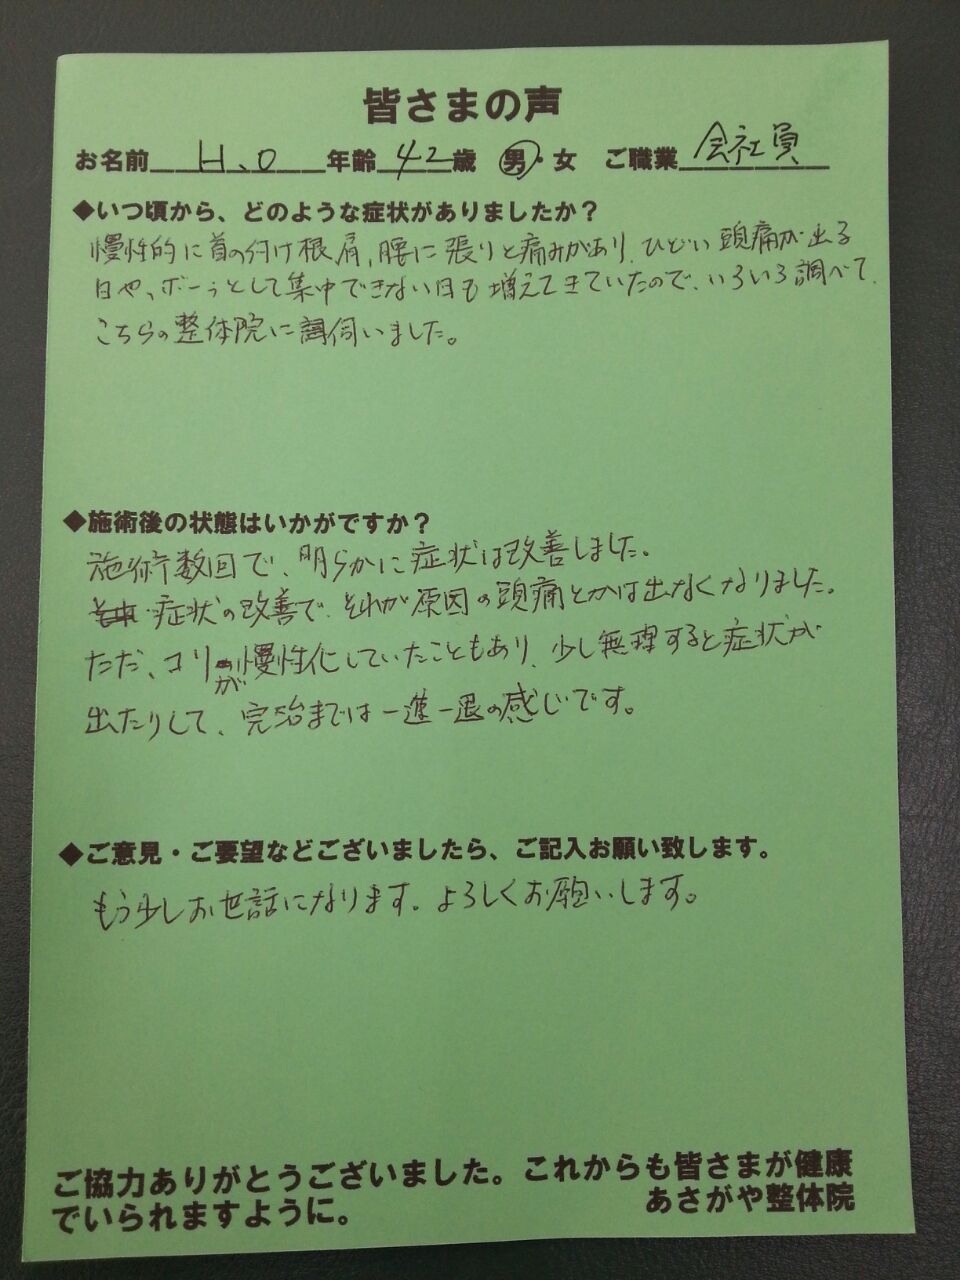 皆さまの声
お名前 H.O 年齢 42 歳 男・女 ご職業 会社員
◆いつ頃から、どのような症状がありましたか？
慢性的に首の付け根、肩、腰に張りと痛みがあり、ひどい頭痛が出る
日や、ボーっとして集中できない日も増えてきていたので、いろいろ調べて、
こちらの整体院に伺いました。
◆施術後の状態はいかがですか？
施術数回で、明らかに症状は改善しました。
症状の改善で、それが原因の頭痛とかは出なくなりました。
ただ、コリが慢性化していたこともあり、少し無理すると症状が
出たりして、完治までは一進一退の感じです。
◆ご意見・ご要望などございましたら、ご記入お願い致します。
もう少しお世話になります。よろしくお願いします。
ご協力ありがとうございました。これからも皆さまが健康
でいられますように。 あさがや整体院